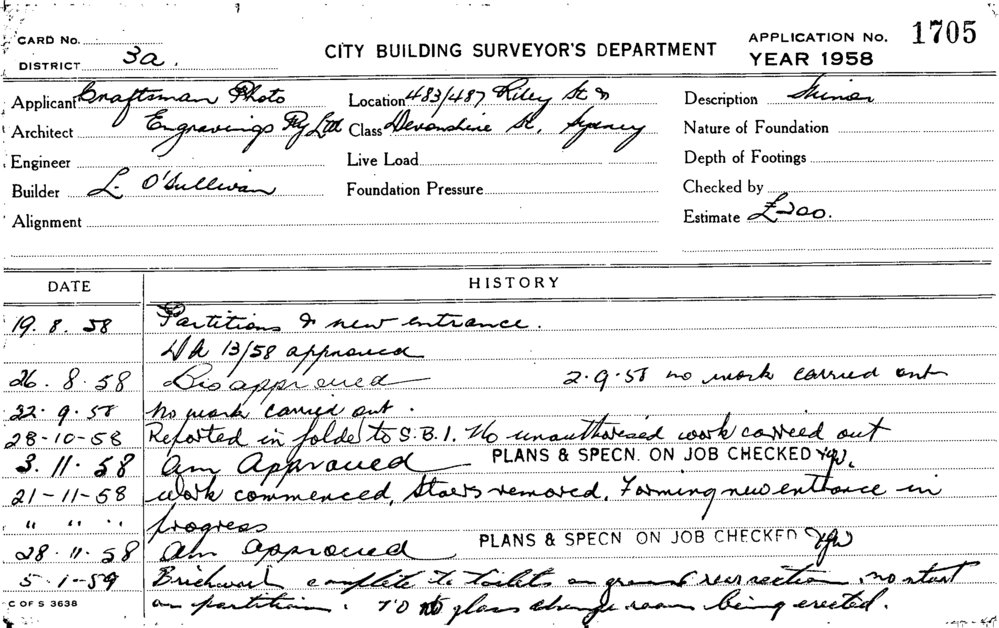 CARD No.
DISTRICT 3a.
CITY BUILDING SURVEYOR'S DEPARTMENT
APPLICATION No. 1705
YEAR 1958
Applicant Craftsman Photo
Location 483/487 Riley St &
Description Minor
Architect Engravings Pty Ltd
Class Devonshire St, Sydney
Nature of Foundation
Engineer
Live Load
Depth of Footings
Builder L. O'Sullivan
Foundation Pressure
Checked by
Alignment
Estimate £200.
DATE HISTORY
19. 8. 58 Partitions & new entrance.
DA 13/58 approved
26. 8. 58 Disapproved 2.9.58 no work carried out
22. 9. 58 no work carried out.
28-10-58 Reported in folder to S.B.I. No unauthorised work carried out
3. 11. 58 am Approved PLANS & SPECN. ON JOB CHECKED
21-11-58 work commenced, Stairs removed. Forming new entrance in
" " " progress
28. 11. 58 am approved PLANS & SPECN ON JOB CHECKED
5-1-59 Brickwork complete to toilets on ground rear section, no start
on partition. glass change room being erected.
C OF S 3638